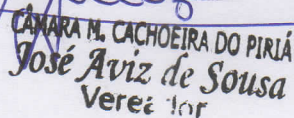 CÂMARA M. CACHOEIRA DO PIRIÁ
José Aviz de Sousa
Vereador